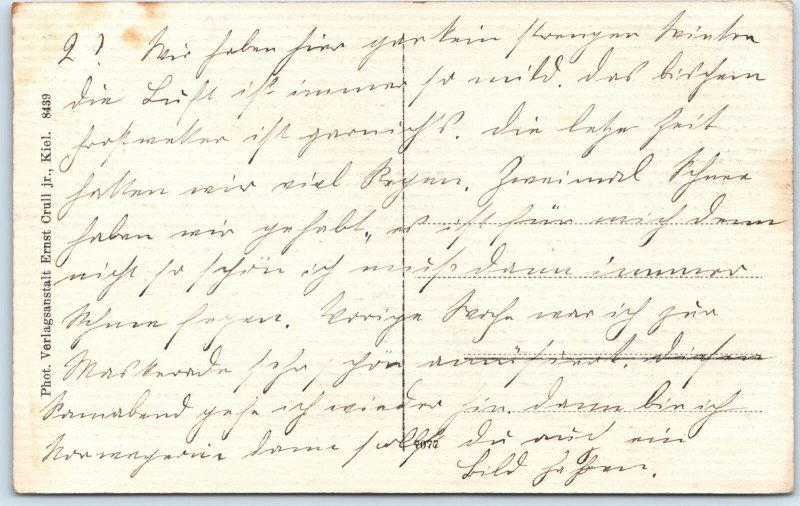 2) Wir haben hier gar kein strengen Winter
die Luft ist immer so mild. das bischen
Frostwetter ist garnich's. die letze Zeit
hatten wir viel Regen. Zweimal Schnee
haben wir gehabt, es ist für mich denn
nicht so schön ich muß dann immer
Schnee fegen. Vorige Woche war ich zur
Maskerade sehr schön amüsiert. diesen
Sonnabend gehe ich wieder hin. dann bin ich
Norwegerin dann sollst du auch ein
Bild haben.
Phot. Verlagsanstalt Ernst Crull jr., Kiel. 8439
7077